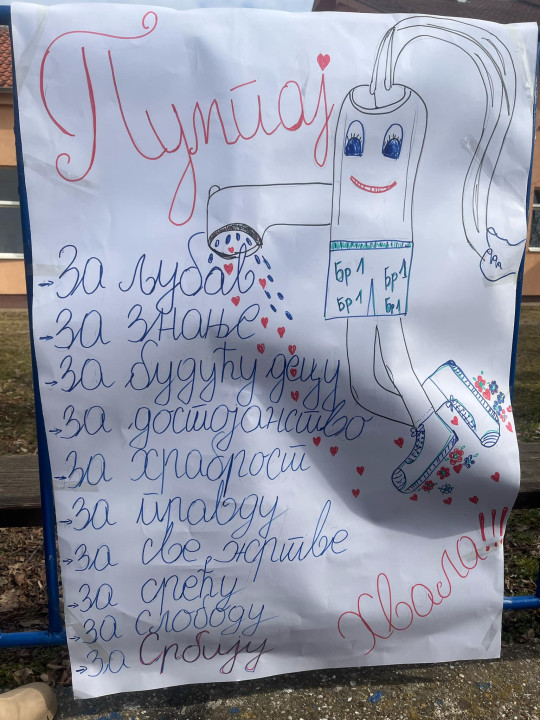 Пумпај
За љубав
За знање
За будућу децу
За достојанство
За храброст
За правду
За све жртве
За срећу
За слободу
За Србију
Бр 1
Бр 1
Бр 1
Бр 1
Хвала!!!